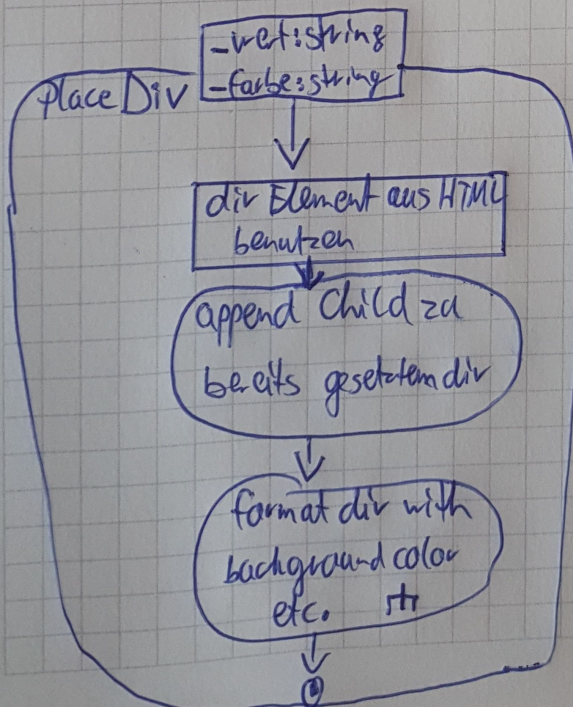 -wert:string
-farbe:string
place Div
div Element aus HTML
benutzen
append Child zu
bereits gesetztem div
format div with
background color
etc.